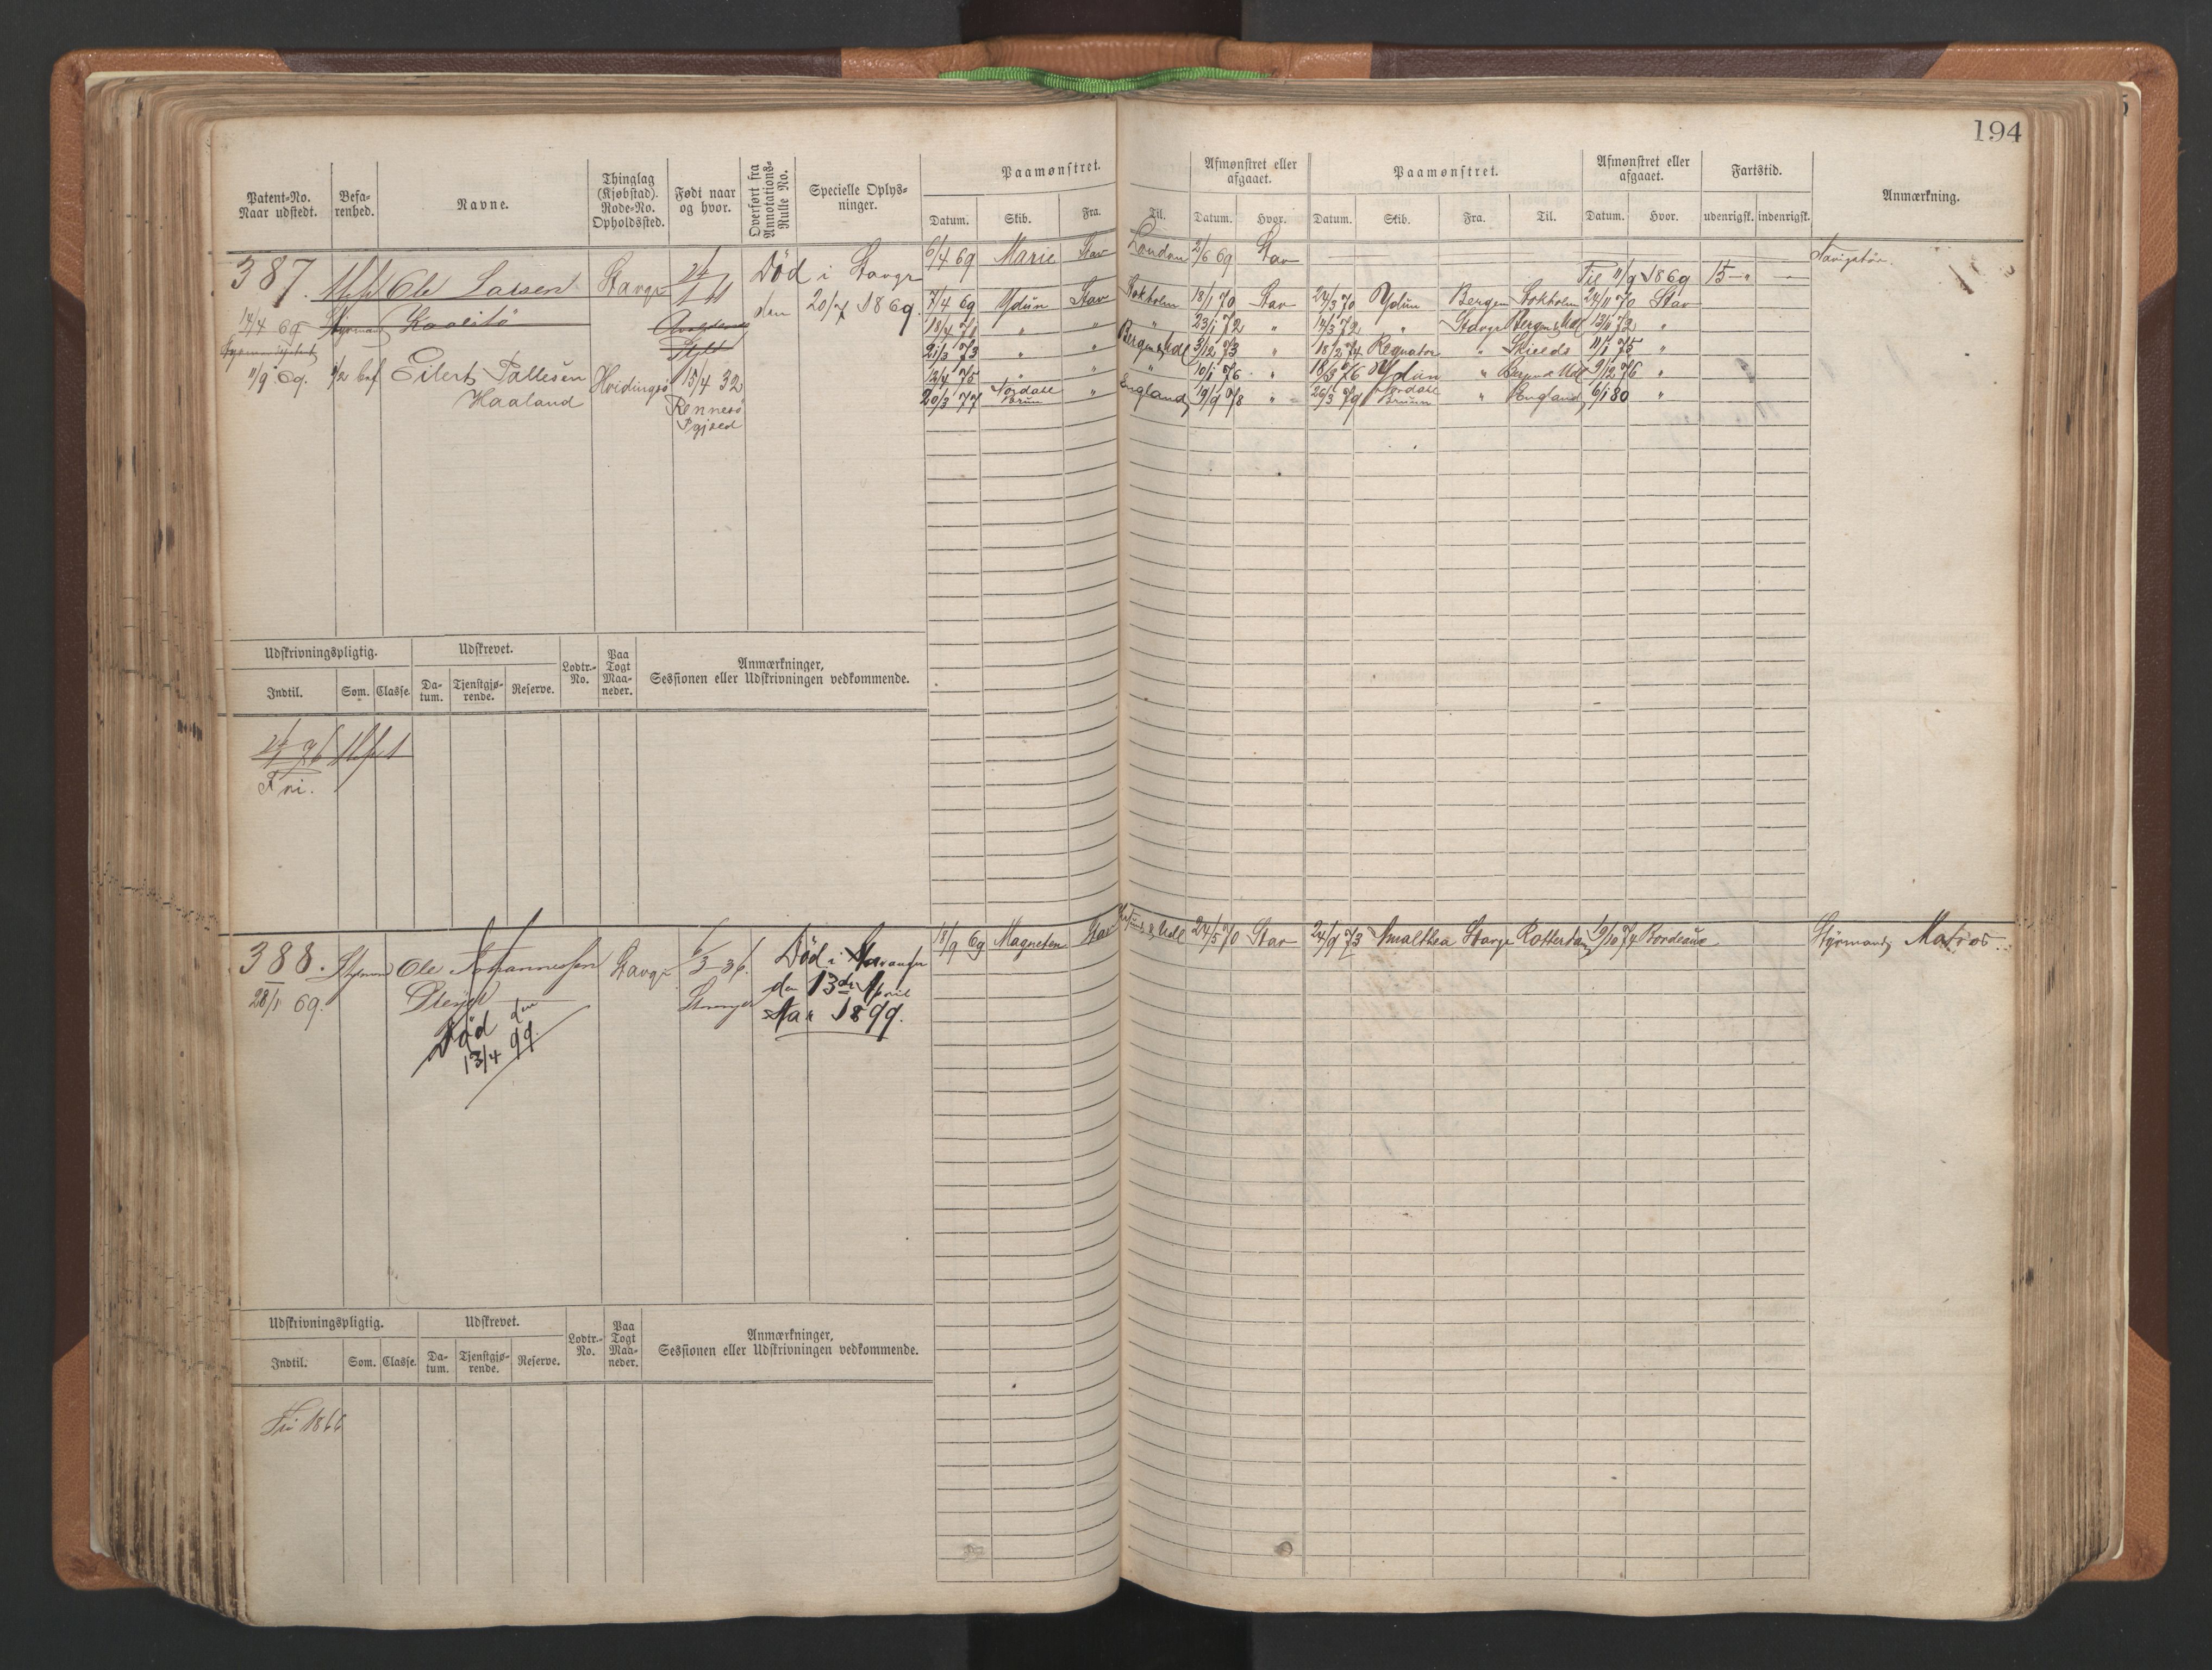 194
Patent-No.
Naar udstedt.
Befa-
renhed.
Navne.
Thinglag
(Kjøbstad).
Rode-No.
Opholdssted.
Født naar
og hvor.
Overført fra
Annotations-
Rulle No.
Specielle Oplys-
ninger.
Paamønstret.
Datum. Skib. Fra. Til.
Afmønstret eller
afgaaet.
Datum. Hvor.
Paamønstret.
Datum. Skib. Fra. Til.
Afmønstret eller
afgaaet.
Datum. Hvor.
Fartstid.
udenrigsk. indenrigsk.
Anmærkning.
387. Ole Larsen Stavgr Død i Stavgr
den 20/7 1869.
14/4 69
11/9 69. 1/2 bef Eilert Tallesen
Haaland
Hvidingsø 15/4 32
Rennesø
Pgjæld
6/4 69 Marie Stav London 2/6 69 Stav
Til 11/9 1869 15 - " -
7/4 69 Ydun Stav Stokholm 18/1 70 Stav 24/3 70 Ydun Bergen Stokholm 24/11 70 Stav
18/4 71 " " " 23/1 72 " 14/3 72 " Stavgr Bergen & Udl 13/6 72 "
21/3 73 " " Bergen & Udl 3/12 73 " 18/2 74 Regnator " Skields 11/1 75 "
12/4 75 " " " 10/1 76 " 18/3 76 Ydun " Bergen & Udl 9/12 76 "
20/3 77 Nordahl
Bruun " England 19/9 78 " 26/3 79 Nordahl
Bruun " England 6/1 80 "
Udskrivningspligtig.
Indtil. Som. Classe.
Udskrevet.
Da-
tum.
Tjenstgjø-
rende.
Reserve.
Lodtr.-
No.
Paa
Togt
Maa-
neder.
Anmærkninger,
Sessionen eller Udskrivningen vedkommende.
Fri.
388. Styrmd Ole Johannessen Stavgr 6/3 36. Død i Stavanger
28/1 69. Stavanger den 13de April
Aar 1899.
Død den
13/4 99.
18/9 69 Magneten Stav & Udl 24/5 70 Stav 24/9 73 Amalthea Stavgr Rotterdam 19/10 74 Bordeaux Styrmand, Matros.
Udskrivningspligtig.
Indtil. Som. Classe.
Udskrevet.
Da-
tum.
Tjenstgjø-
rende.
Reserve.
Lodtr.-
No.
Paa
Togt
Maa-
neder.
Anmærkninger,
Sessionen eller Udskrivningen vedkommende.
Fri 1866